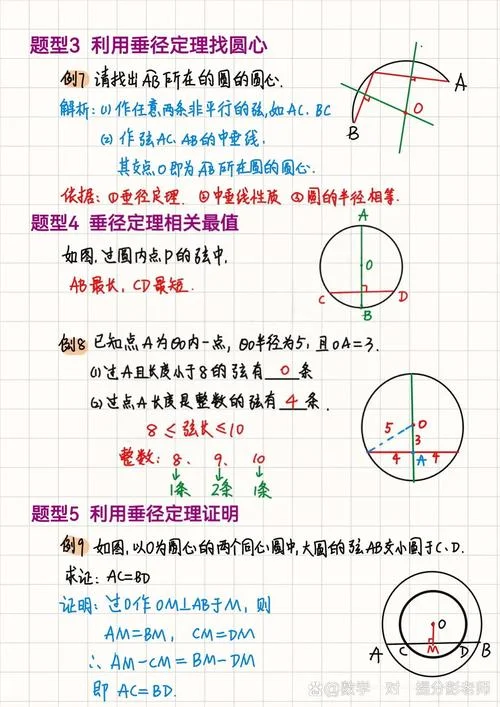 题型3 利用垂径定理找圆心
例7 请找出AB所在的圆的圆心.
解析:(1)作任意两条非平行的弦,如AC、BC
(2)作弦AC、AB的中垂线.
其交点O即为AB所在圆的圆心.
依据:①垂径定理 ②中垂线性质 ③圆的半径相等.
A
B
O
题型4 垂径定理相关最值
如图,过圆内点P的弦中,
AB最长,CD最短.
A
O
C
D
B
例8 已知点A为⊙O内一点,⊙O半径为5,且OA=3.
(1)过A且长度小于8的弦有 0 条
(2)过点A长度是整数的弦有 4 条.
8≤弦长≤10
整数:8、9、10
↓ ↓ ↓
1条 2条 1条
5
O
3
4
A
4
题型5 利用垂径定理证明
例9 如图,以O为圆心的两个同心圆中,大圆的弦AB交小圆于C、D.
求证:AC=BD
证明:过O作OM⊥AB于M,则
AM=BM, CM=DM
∴ AM-CM=BM-DM
即 AC=BD.
O
A
C
M
D
B
@数学 对 提分彭老师